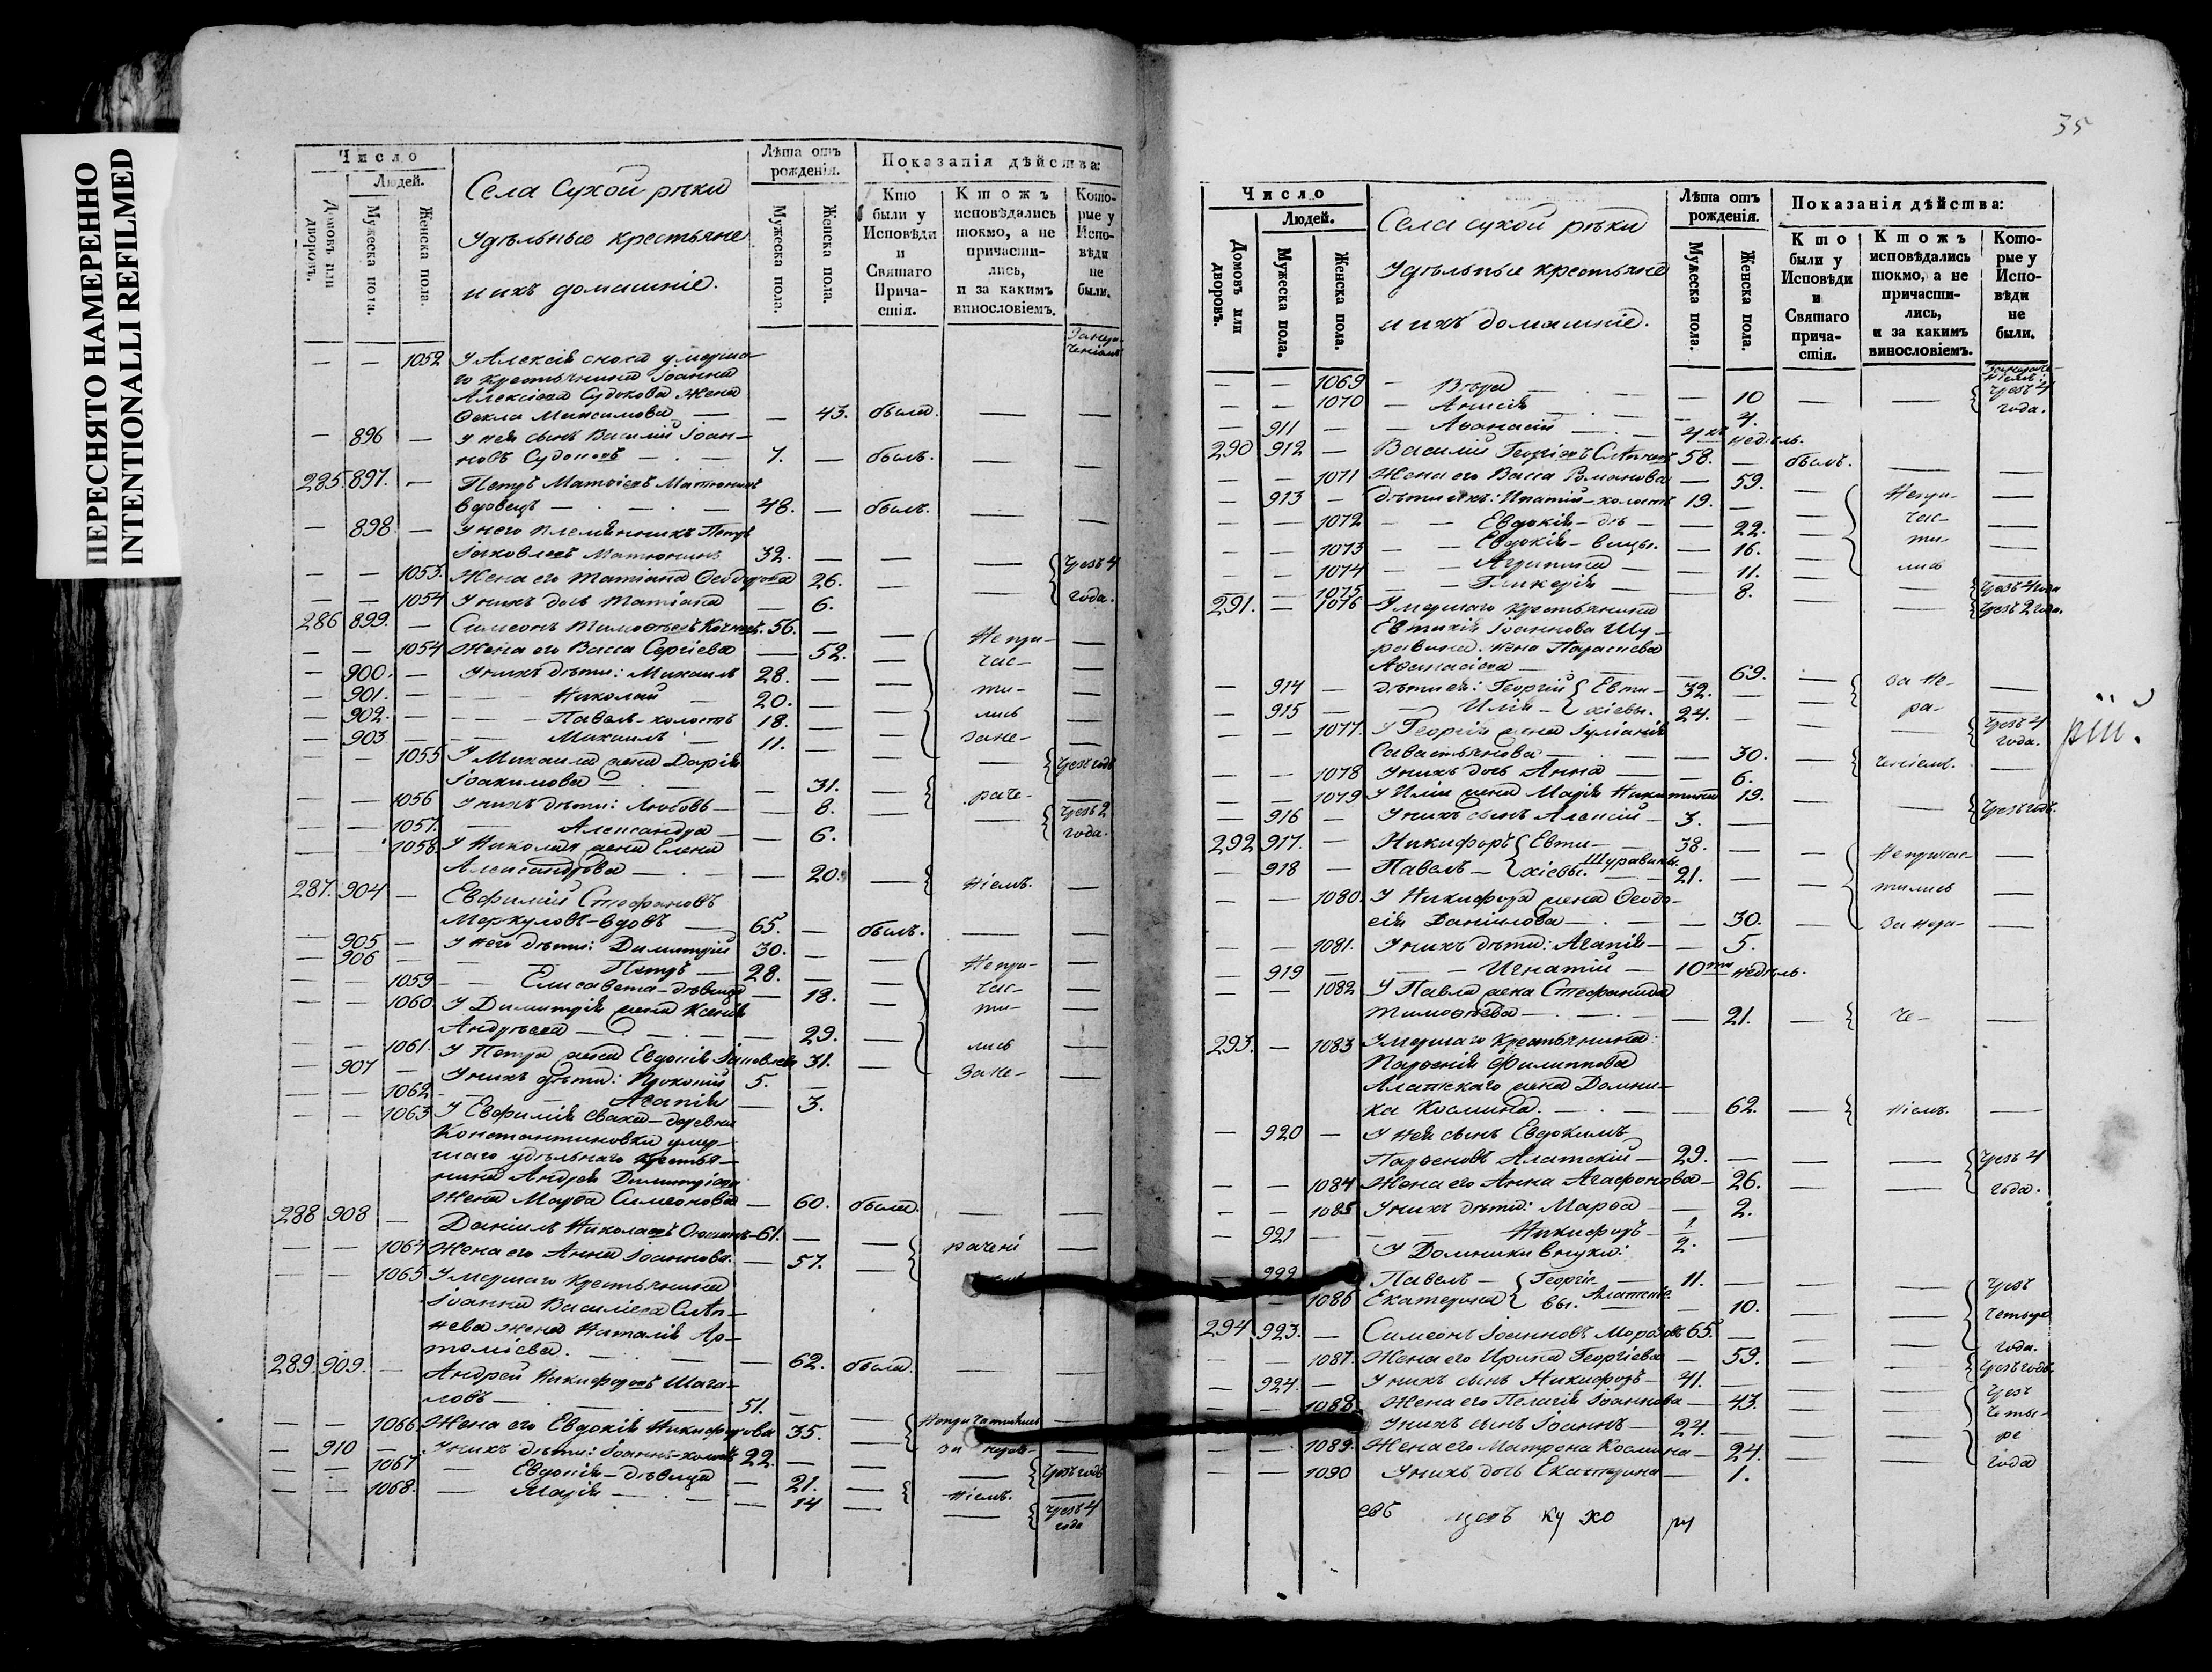 ПЕРЕСНЯТО НАМЕРЕННО
INTENTIONALLI REFILMED
Число
Людей.
Домовъ или дворовъ.
Мужеска пола.
Женска пола.
Села Сухой рѣки
Удѣльные крестьяне
и ихъ домашніе.
Лѣта отъ рожденія.
Мужеска пола.
Женска пола.
Показанія дѣйства:
Кто были у Исповѣди и Святаго Причастія.
Ктожъ исповѣдались токмо, а не причастились, и за какимъ винословіемъ.
Которые у Исповѣди не были.
— — 1052 У Алексія сноха умерша-
го крестьянина Іоанна
Алексіева Судокова жена
Ѳекла Максимова — — 43. была. — —
— 896 — У нея сынъ Василій Іоан-
новъ Судоковъ — 7. — былъ. —
285. 897. — Петръ Матѳіевъ Матюнинъ
вдовецъ — 48. — былъ. —
— 898. — У него племянникъ Петръ
Іаковлевъ Матюнинъ 32. — —
— — 1053. Жена его Татіана Ѳеодорова 26. — — Чрезъ 4
— — 1054 У нихъ дочь Татіана — 6. — — года.
286 899. — Симеонъ Тимоѳеевъ 56. — —
— — 1054 Жена его Васса Сергіева — 52. — Непри- —
— 900. — У нихъ дѣти: Михаилъ 28. — — час- —
— 901. — — Николай 20. — — ти- —
— 902. — — Павелъ-холостъ 18. — — лись —
— 903 — — Михаилъ 11. — — зане- —
— — 1055 У Михаила жена Дарія
Іоакимова — — 31. — — Чрезъ годъ
— — 1056 У нихъ дѣти: Любовь — 8. — раче- —
— — 1057. — Александра — 6. — — Чрезъ 2 года.
— — 1058. У Николая жена Елена
Александрова — — 20. — ніемъ. —
287. 904 — Евфимій Стефановъ
Меркуловъ-вдовъ 65. — былъ. — —
— 905 — У него дѣти: Димитрій 30. — —
— 906 — Петръ — 28. — — Непри- —
— — 1059 — Елисавета-дѣвица — 18. — час- —
— — 1060 У Димитрія жена Ксенія
Андреева — — 29. — ти- —
— — 1061. У Петра жена Евдокія Іаковлева 31. — лись —
— 907 — У нихъ дѣти: Прокопій 5. — зане- —
— — 1062 — Агапія — 3.
— — 1063 У Евфимія сваха-деревни
Константиновки умер-
шаго удѣльнаго крестья-
нина Андрея Димитріева
жена Марѳа Симеонова — 60. была. — —
288 908 — Даніилъ Николаевъ 61. — —
— — 1064 Жена его Анна Іоаннова. — 57. — рачені —
— — 1065 Умершаго крестьянина
Іоанна Василіева Слѣп-
нева жена Наталія Ар-
теміева. — — 62. была. — —
289. 909. — Андрей Никифоровъ Шага-
ловъ — 51. — —
— — 1066 Жена его Евдокія Никифорова 35. — Непричастились —
— 910 — У нихъ дѣти: Іоаннъ-холостъ 22. — — за нера- —
— — 1067 — Евдокія-дѣвица — 21. — — Чрезъ годъ
— — 1068. — Марія — — 14 — ніемъ. Чрезъ 4 года
35
Число
Людей.
Домовъ или дворовъ.
Мужеска пола.
Женска пола.
Села сухой рѣки
Удѣльные крестьяне
и ихъ домашніе.
Лѣта отъ рожденія.
Мужеска пола.
Женска пола.
Показанія дѣйства:
Кто были у Исповѣди и Святаго причастія.
Ктожъ исповѣдались токмо, а не причастились, и за какимъ винословіемъ.
Которые у Исповѣди не были.
— — 1069 — Вѣра — — 10 — — Чрезъ 4
— — 1070 — Анисія — — 4. года.
— 911 — — Аѳанасій — 4хъ недѣль.
290 912 — Василій Георгіевъ Слѣпневъ 58. — былъ. —
— — 1071 Жена его Васса Романова — 59. — —
— 913 — Дѣти ихъ: Игнатій-холостъ 19. — — Непри- —
— 1072 — — Евдокія — дѣ — 22. — час- —
— — 1073 — — Евдокія — вицы. — 16. — ти- —
— — 1074 — — Агрипина — — 11. — лись —
— — 1075 — Гликерія — — 8. — — Чрезъ 4 года
291. — 1076 Умершаго крестьянина — — Чрезъ 2 года.
Евтихія Іоаннова Шу-
равина жена Параскева
Аѳанасіева — — 69. — —
— 914 — Дѣти ея: Георгій Евти- 32. — за не- —
— 915 — Илія — хіевы. 24. — ра- —
— — 1077. У Георгія жена Іуліанія Чрезъ 4 года.
Савастьянова — — 30. — чініемъ. —
— — 1078 У нихъ дочь Анна — — 6.
— — 1079 У Иліи жена Марія Никитина 19. — — Чрезъ годъ.
— 916 — У нихъ сынъ Алексій — 3. —
292 917. — Никифоръ Евти- — 38. — — Непричас- —
— 918 — Павелъ — хіевы. Шуравины. 21. — — тились —
— — 1080. У Никифора жена Ѳеодо-
сія Даніилова — — 30. — за нера- —
— — 1081. У нихъ дѣти: Агапія — — 5.
— 919 — — Игнатій — 10ти недѣль.
— — 1082 У Павла жена Стефанида
Тимоѳеева — — 21. — че- —
293. — 1083 Умершаго крестьянина:
Парѳенія Филиппова
Алатскаго жена Домни-
ка Косьмина. — — 62. — ніемъ. —
— 920 — У нея сынъ Евдокимъ
Парѳеновъ Алатскій — 29. — — — Чрезъ 4
— — 1084 Жена его Анна Агафонова — 26. — — года.
— — 1085 У нихъ дѣти: Марѳа — — 2.
— 921 — — Никифоръ —
У Домники внуки: 2. —
922 Павелъ — Георгіе- — 11. — — — Чрезъ
— — 1086 Екатерина вы. Алатскіе — 10. — — четыре
294 923. — Симеонъ Іоанновъ Морозовъ 65. — — — года.
— — 1087. Жена его Ирина Георгіева — 59. — — Чрезъ годъ.
— 924. — У нихъ сынъ Никифоръ — 41. — — — Чрезъ
— — 1088. Жена его Пелагія Іоаннова — 43. — — четы-
У нихъ сынъ Іоаннъ — 24. — — — ре
— — 1089. Жена его Матрона Косьмина — 24. — — года
— — 1090 У нихъ дочь Екатерина — 1.